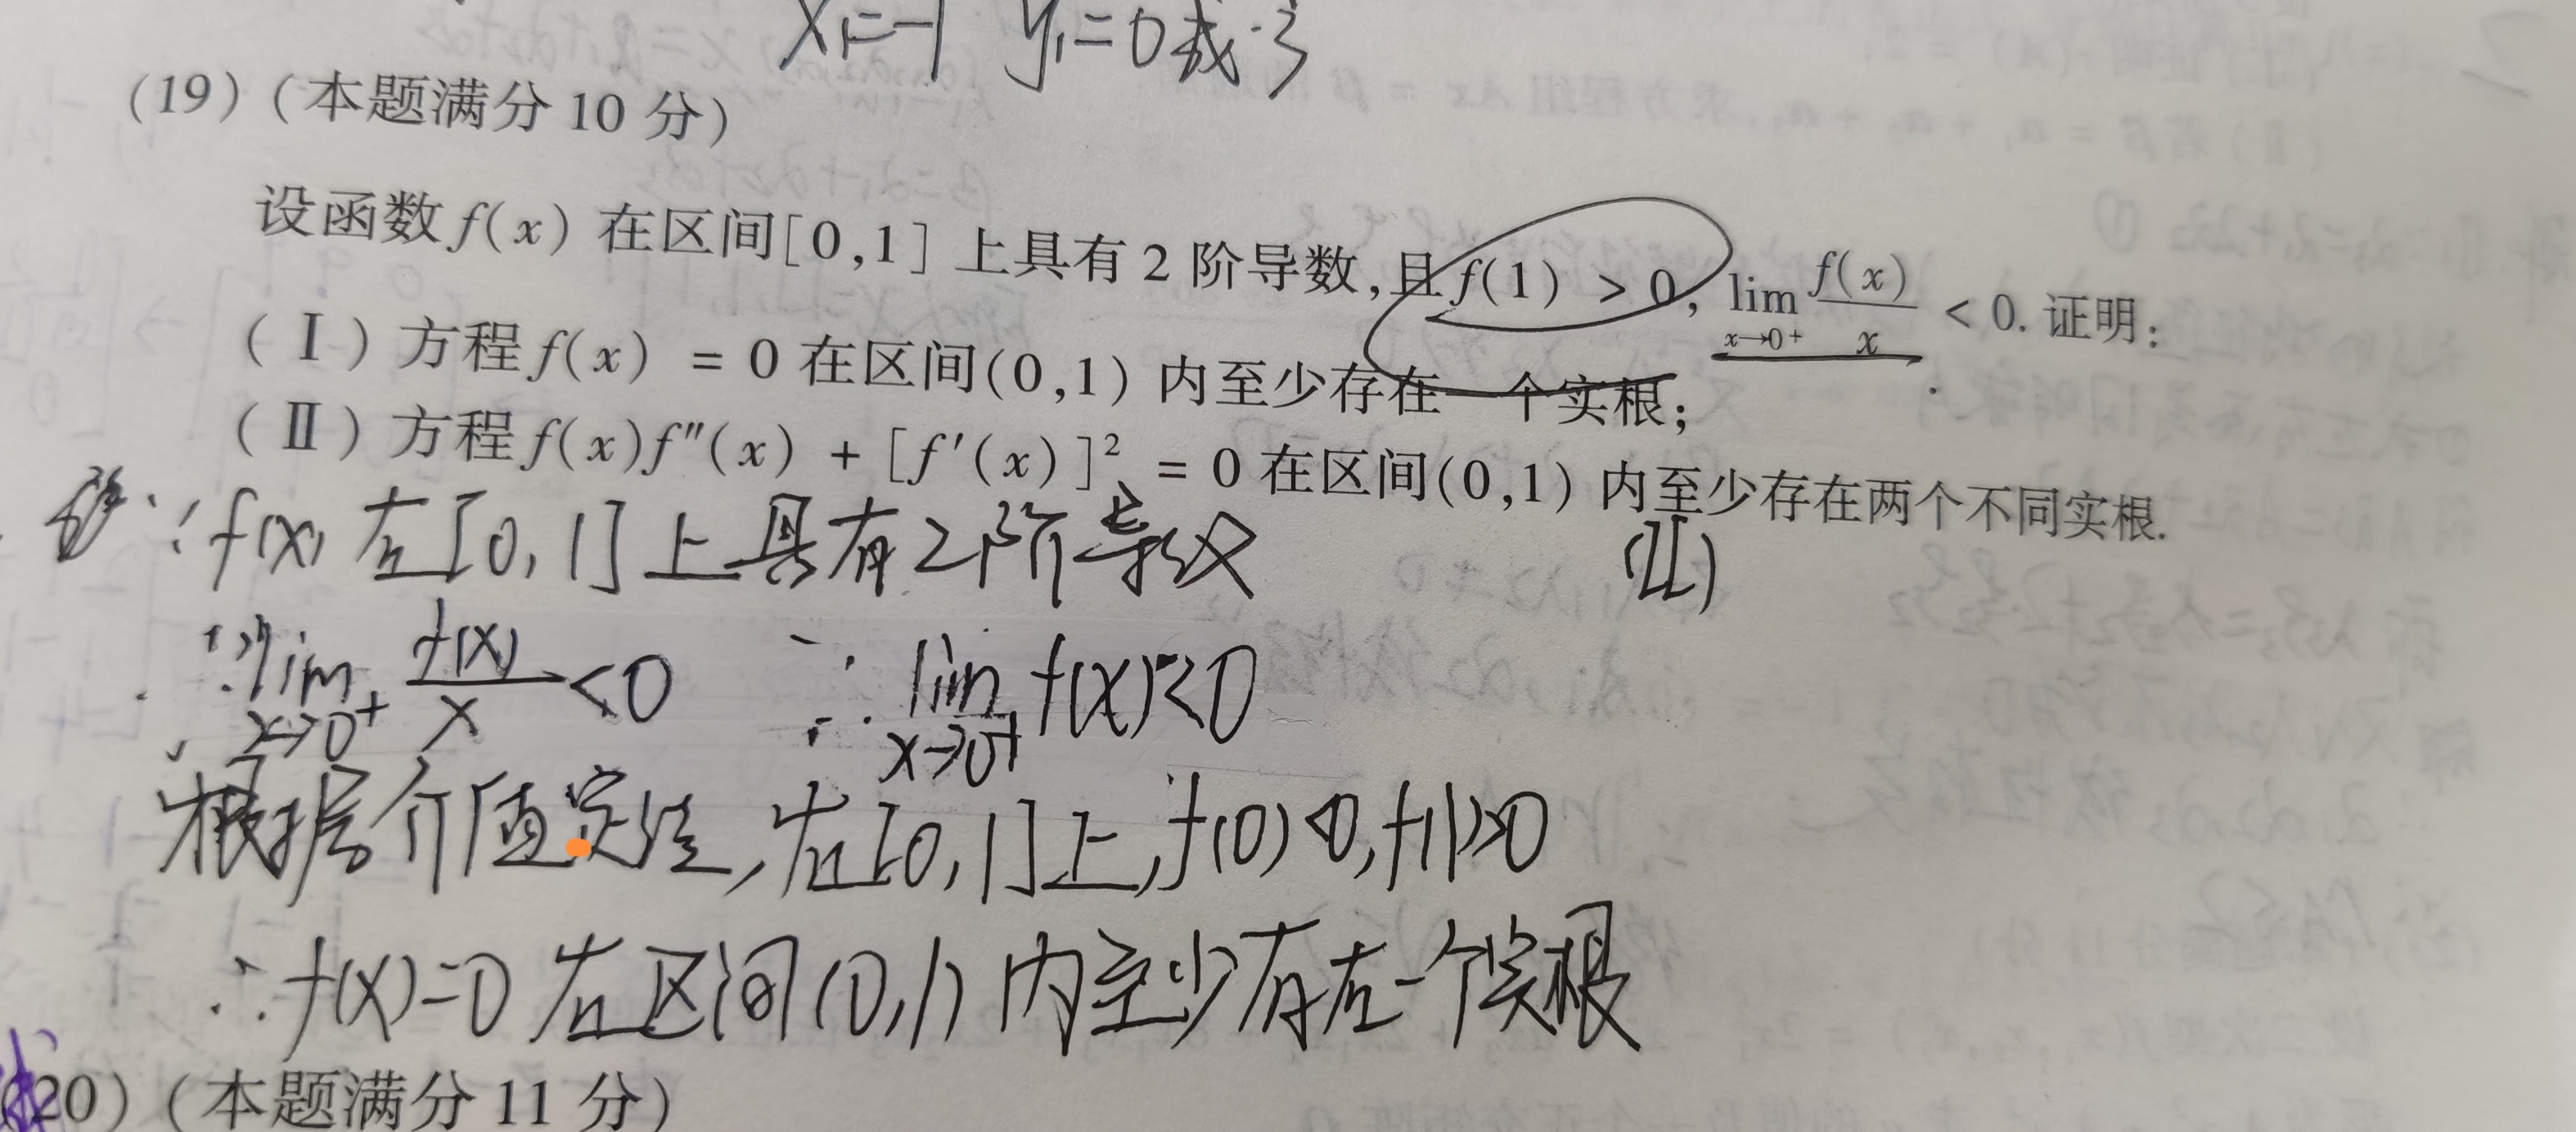 x₁=-1 y₁=0或
(19)(本题满分 10 分)
设函数f(x) 在区间[0,1] 上具有 2 阶导数,且f(1) > 0, lim_{x→0⁺} f(x)/x < 0. 证明:
(Ⅰ) 方程f(x) = 0 在区间(0,1) 内至少存在一个实根;
(Ⅱ) 方程f(x)f″(x) + [f′(x)]² = 0 在区间(0,1) 内至少存在两个不同实根.
∵f(x) 在[0,1]上具有2阶导数
(II)
∵lim_{x→0⁺} f(x)/x <0 ∴ lim_{x→0⁺} f(x)<0
根据介值定理,在[0,1]上,f(0)<0,f(1)>0
∴f(x)=0 在区间(0,1) 内至少存在一个实根
(20)(本题满分 11 分)